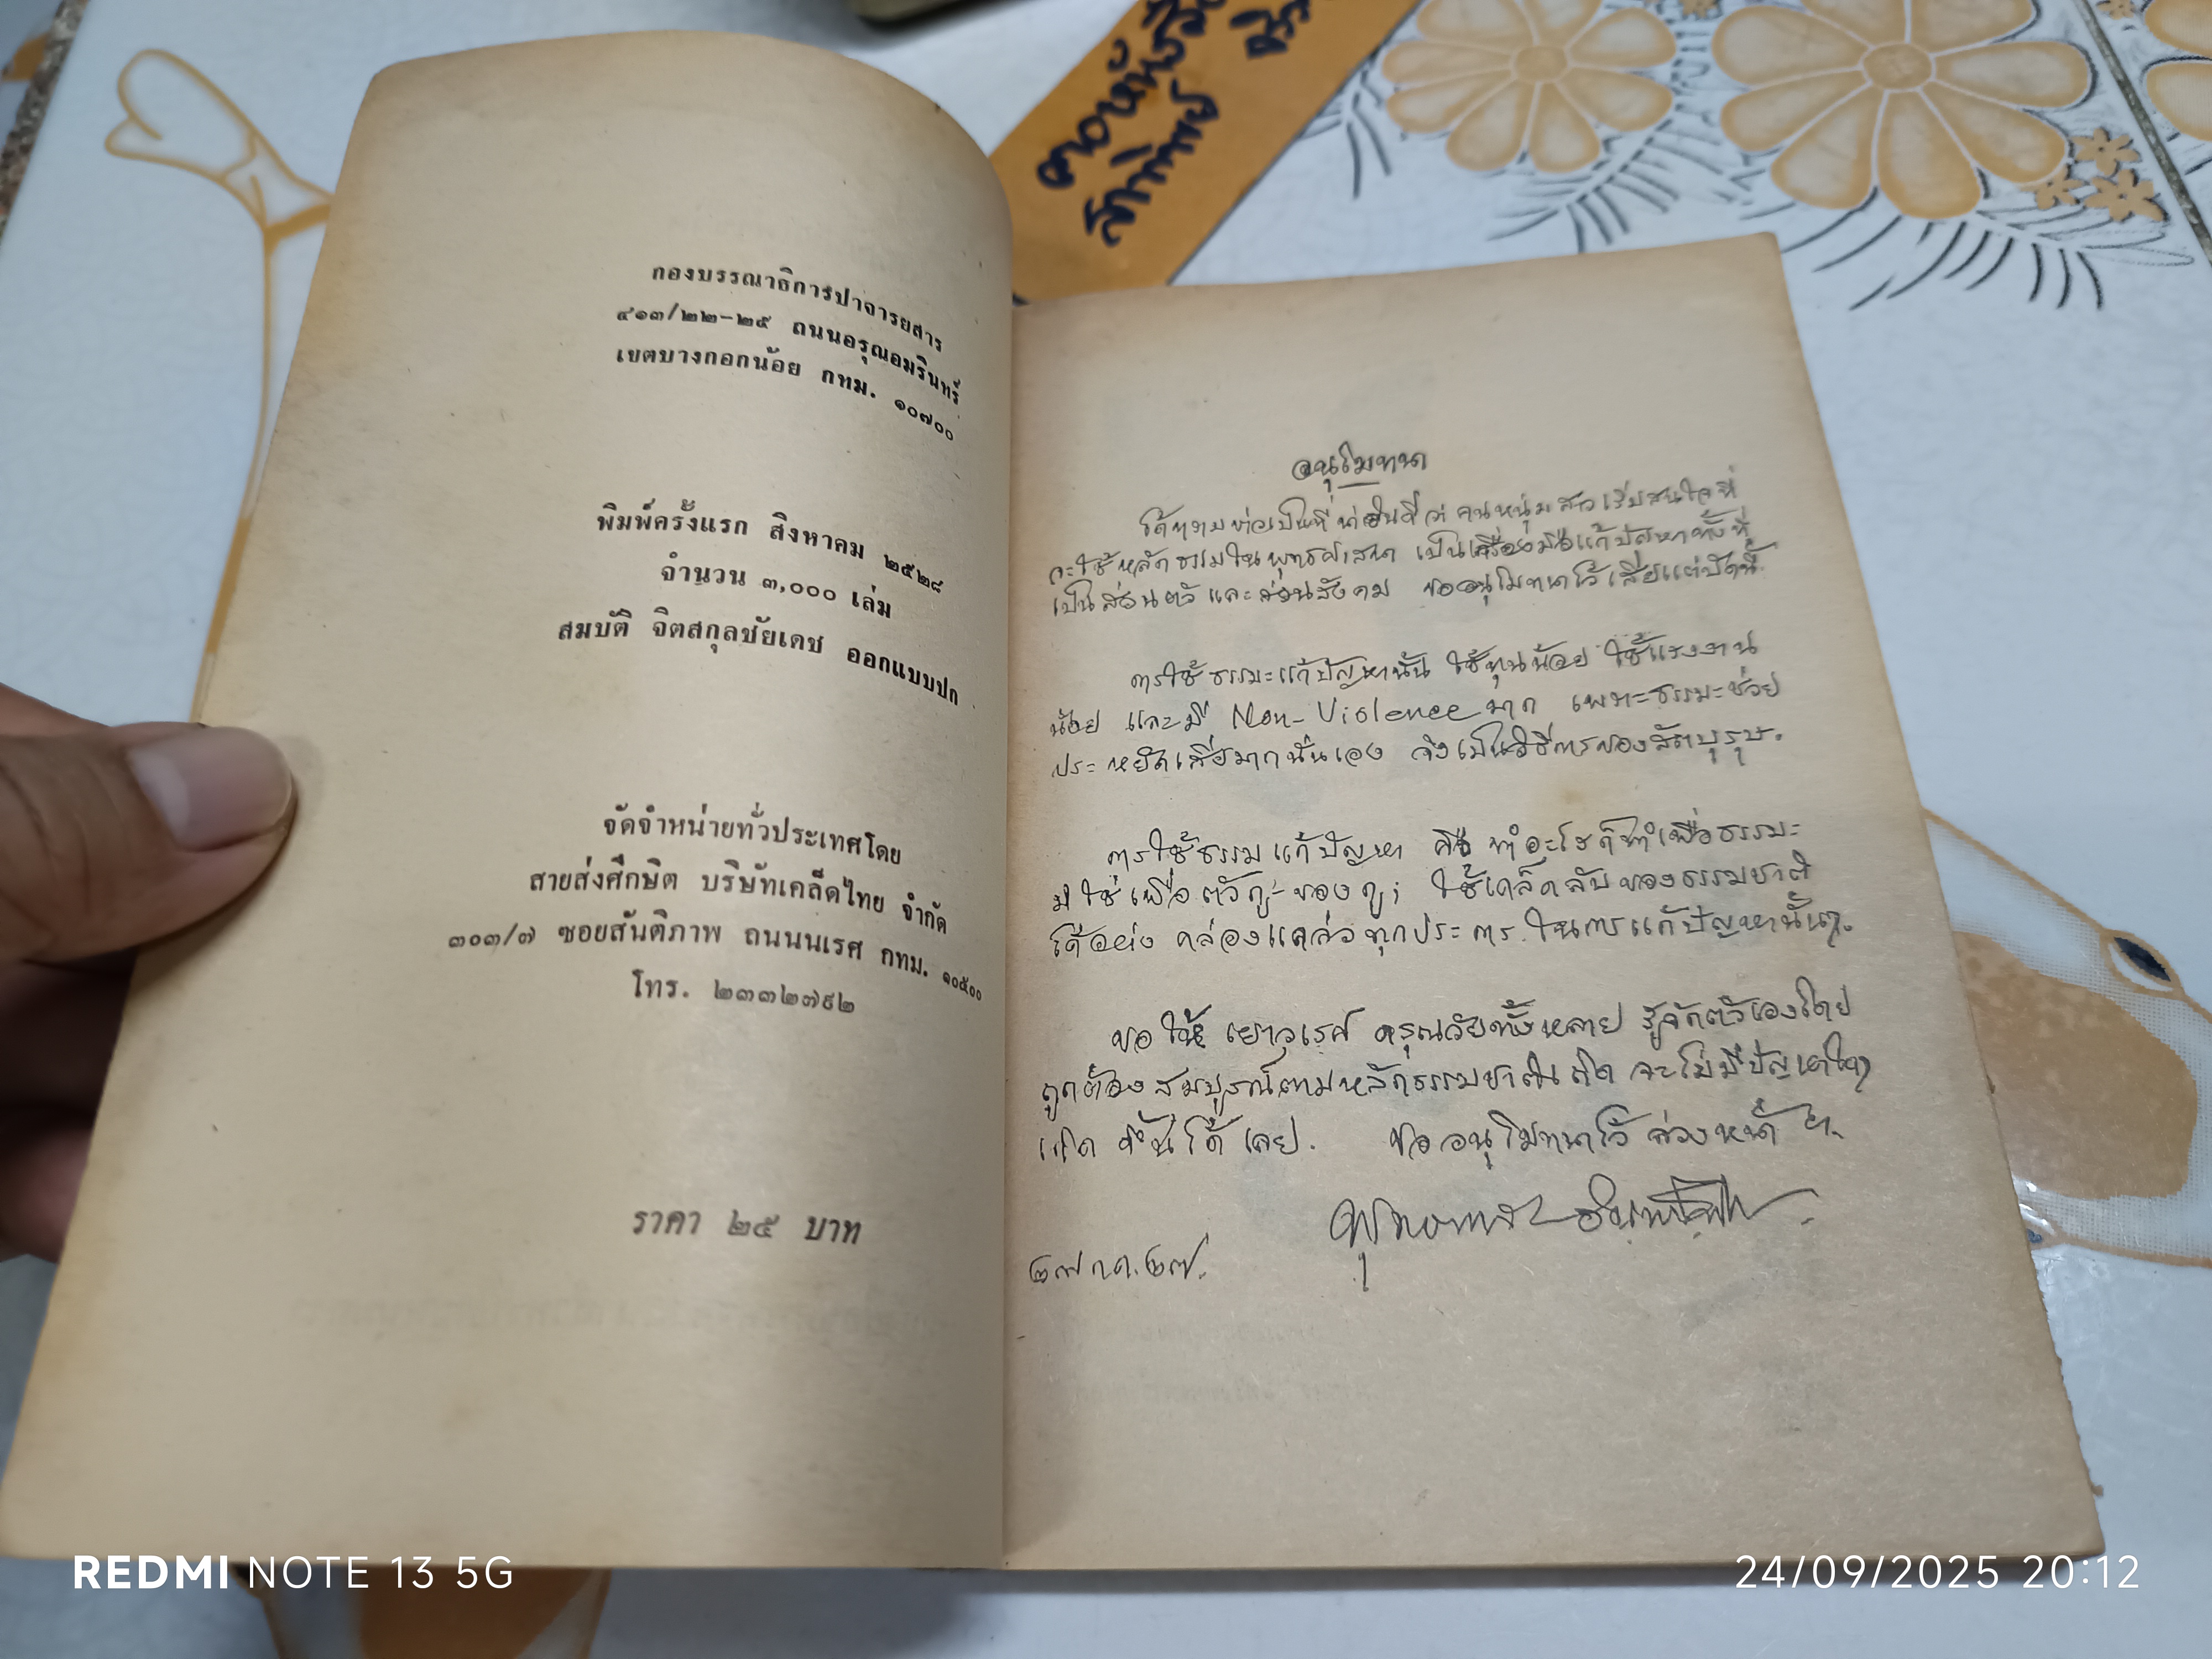 กองบรรณาธิการปาจารยสาร
๔๑๓/๒๒-๒๕ ถนนอรุณอมรินทร์
เขตบางกอกน้อย กทม. ๑๐๗๐๐
พิมพ์ครั้งแรก สิงหาคม ๒๕๒๘
จำนวน ๓,๐๐๐ เล่ม
สมบัติ จิตสกุลชัยเดช ออกแบบปก
จัดจำหน่ายทั่วประเทศโดย
สายส่งศึกษิต บริษัทเคล็ดไทย จำกัด
๓๐๓/๗ ซอยสันติภาพ ถนนนเรศ กทม. ๑๐๕๐๐
โทร. ๒๓๓๒๗๙๒
ราคา ๒๕ บาท
อนุโมทนา
ได้ทราบข่าวเป็นที่น่ายินดีว่า คนหนุ่มสาวเริ่มสนใจที่
จะใช้หลักธรรมในพุทธศาสนา เป็นเครื่องมือแก้ปัญหาทั้งที่
เป็นส่วนตัวและส่วนสังคม ขออนุโมทนาไว้เสียแต่บัดนี้.
การใช้ธรรมะแก้ปัญหานั้น ใช้ทุนน้อย ใช้แรงงาน
น้อย และมี Non-Violence มาก เพราะธรรมะช่วย
ประหยัดเสียมากนั่นเอง จึงเป็นวิธีการของสัตบุรุษ.
การใช้ธรรมแก้ปัญหา คือ ทำอะไรก็ทำเพื่อธรรมะ
มิใช่เพื่อตัวกู-ของกู; ใช้เคล็ดลับของธรรมชาติ
ได้อย่างคล่องแคล่วทุกประการ ในการแก้ปัญหานั้นๆ.
ขอให้ ดรุณวัยทั้งหลาย รู้จักตัวเองโดย
ถูกต้องสมบูรณ์ตามหลักธรรมชาติเถิด จะไม่มีปัญหาใดๆ
เกิดขึ้นได้เลย. ขออนุโมทนาไว้ล่วงหน้า
พุทธทาส อินทปัญโญ
๒๗ ก.ค. ๒๗.
สาทิพย์
REDMI NOTE 13 5G
24/09/2025 20:12